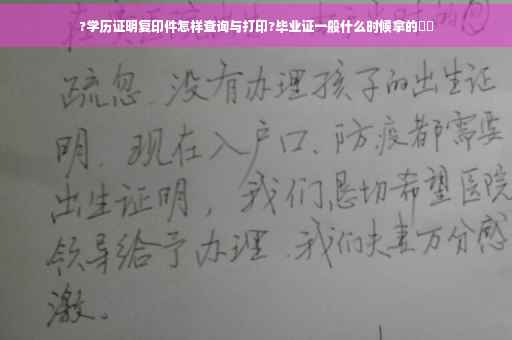 ?学历证明复印件怎样查询与打印?毕业证一般什么时候拿的
疏忽、没有办理孩子的出生证
明、现在入户口、防疫都需要
出生证明，我们恳切希望医院
领导给予办理、我们夫妻万分感
激。